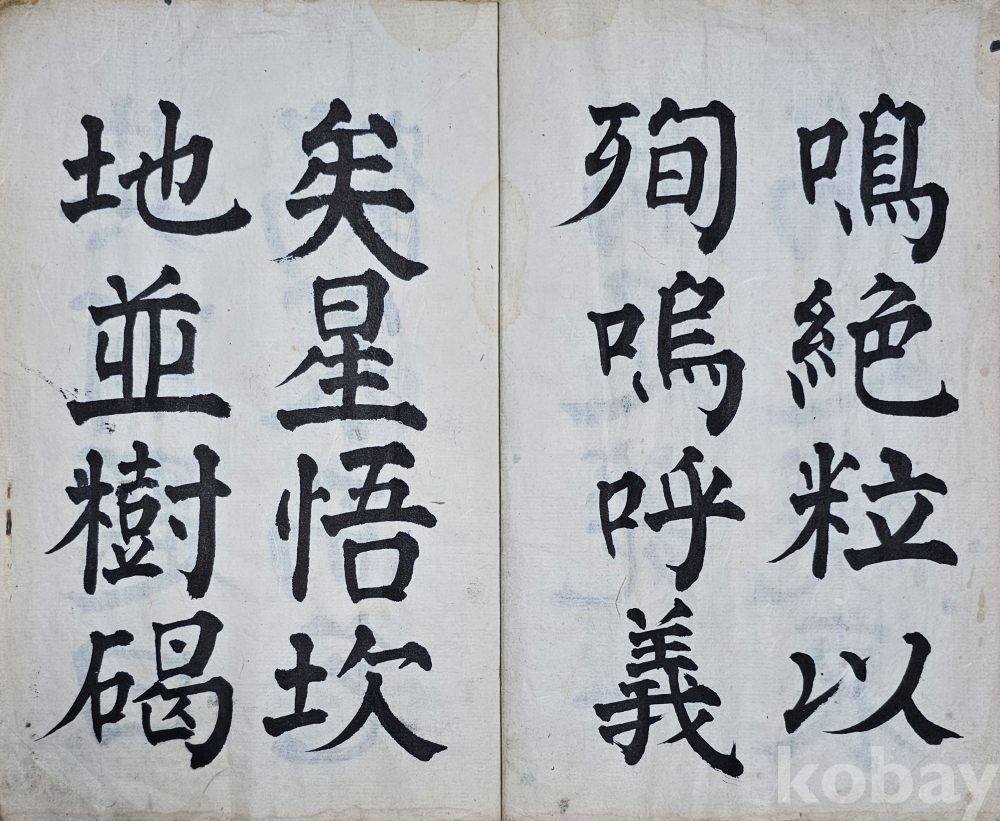 鳴絶粒以
殉嗚呼義
矣星悟坎
地並樹碣
kobay